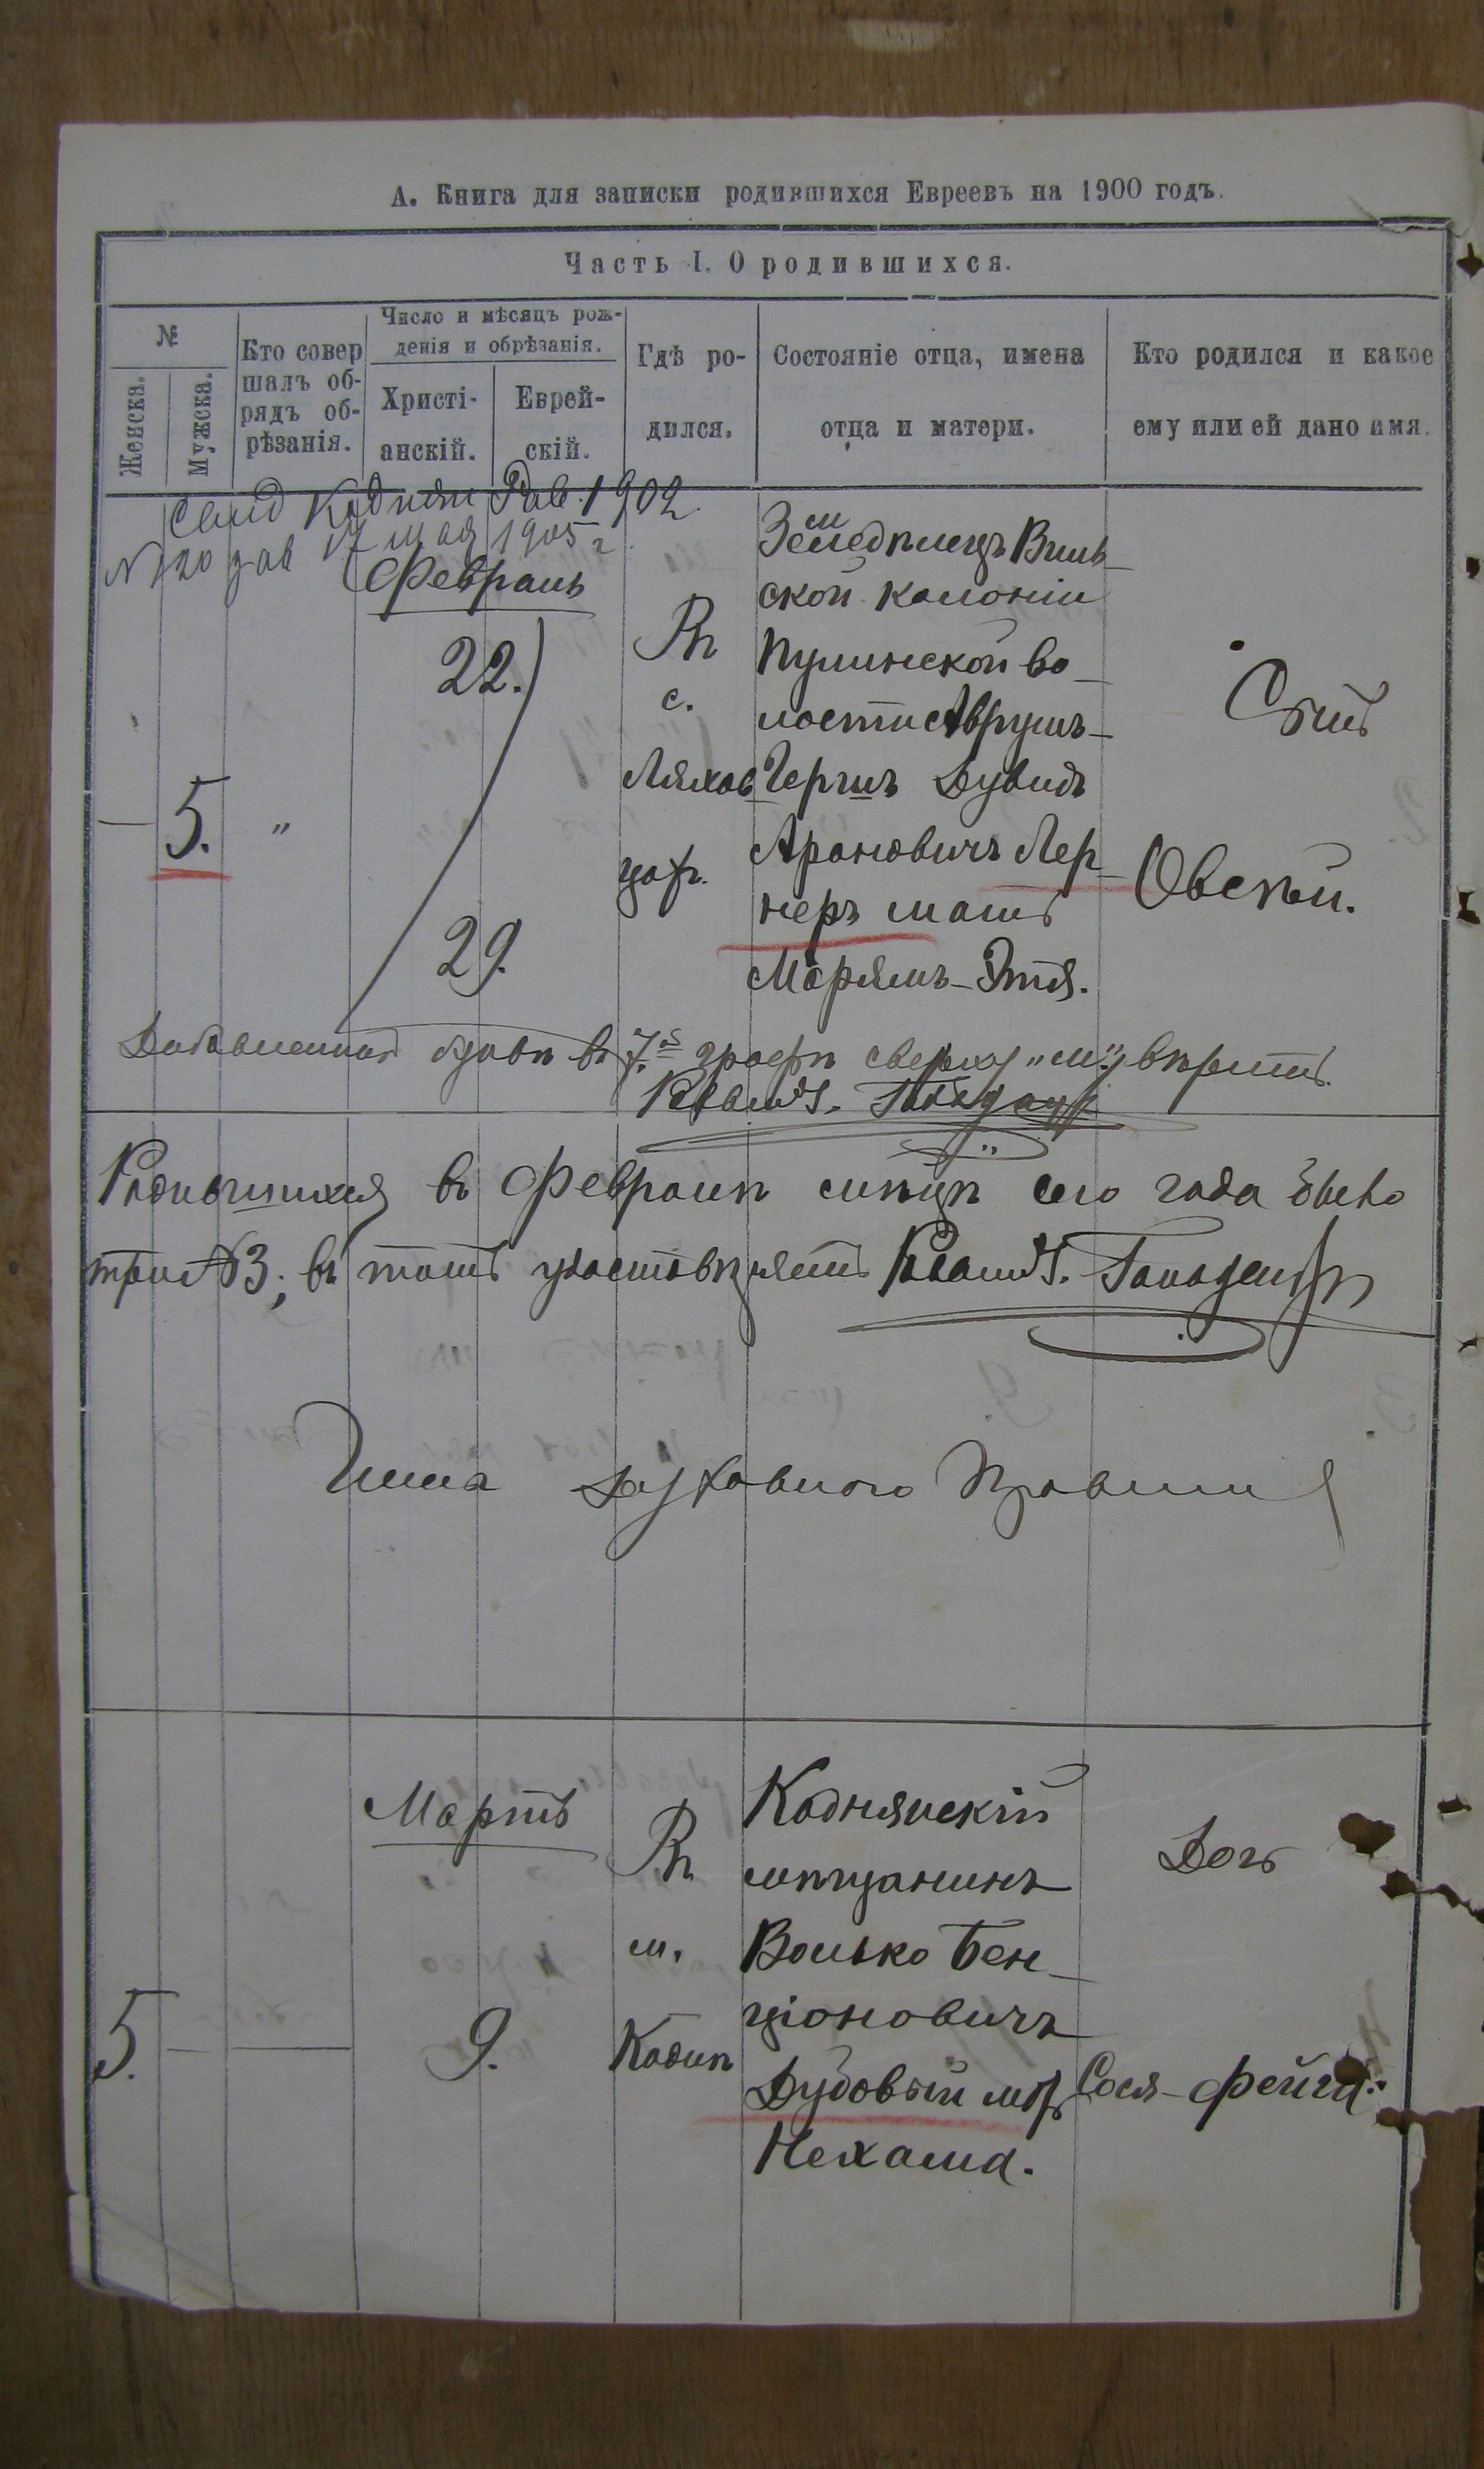 А. Книга для записки родившихся Евреевъ на 1900 годъ.
Часть I. О родившихся.
№
Женска.
Мужска.
Кто совер
шалъ об-
рядъ об-
рѣзанія.
Число и мѣсяцъ рож-
денія и обрѣзанія.
Христі-
анскій.
Еврей-
скій.
Гдѣ ро-
дился.
Состояніе отца, имена
отца и матери.
Кто родился и какое
ему или ей дано имя.
1902
мая 1905 г.
Февраль
—
5.
"
22.
29.
Въ
с.
Ляхов
цах.
Землед
ской колоніи
Пулинской во-
лости Аврумъ-
Гершъ Дувидъ
Ароновичъ Лер-
неръ мать
Марямъ-Этя.
Сынъ
Овсѣй.
Добавленная буква въ 7й графѣ сверху „м" вѣрить.
Раввинъ
Родившихся въ Февралѣ мѣсяцѣ сего года было
три №3; въ томъ удостовѣряетъ Раввинъ
Члена Духовного Правлени
Мартъ
5.
—
9.
Въ
м.
Коднѣ
Коднянскій
мѣщанинъ
Волько Бен-
ціоновичъ
Дубовый мать
Нехама.
Дочь
Сося-Фейга.